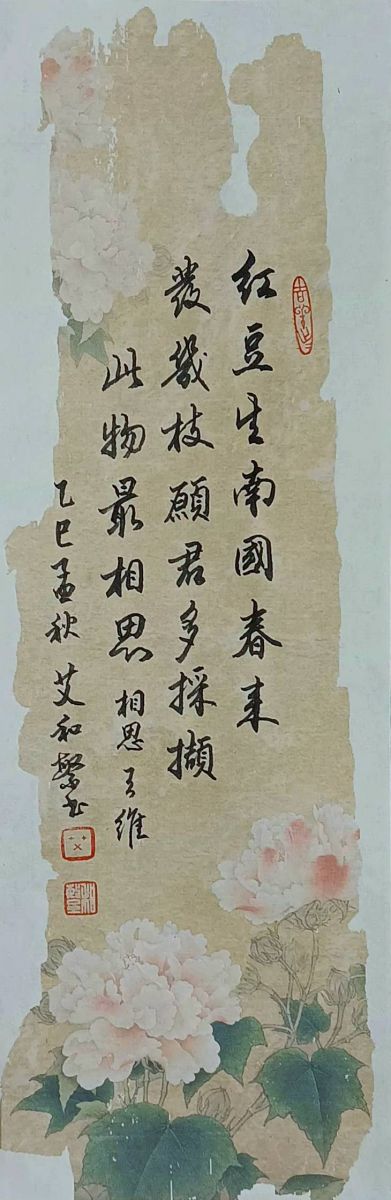 红豆生南國春来
發幾枝願君多採擷
此物最相思 相思 王维
乙巳孟秋 艾和 書